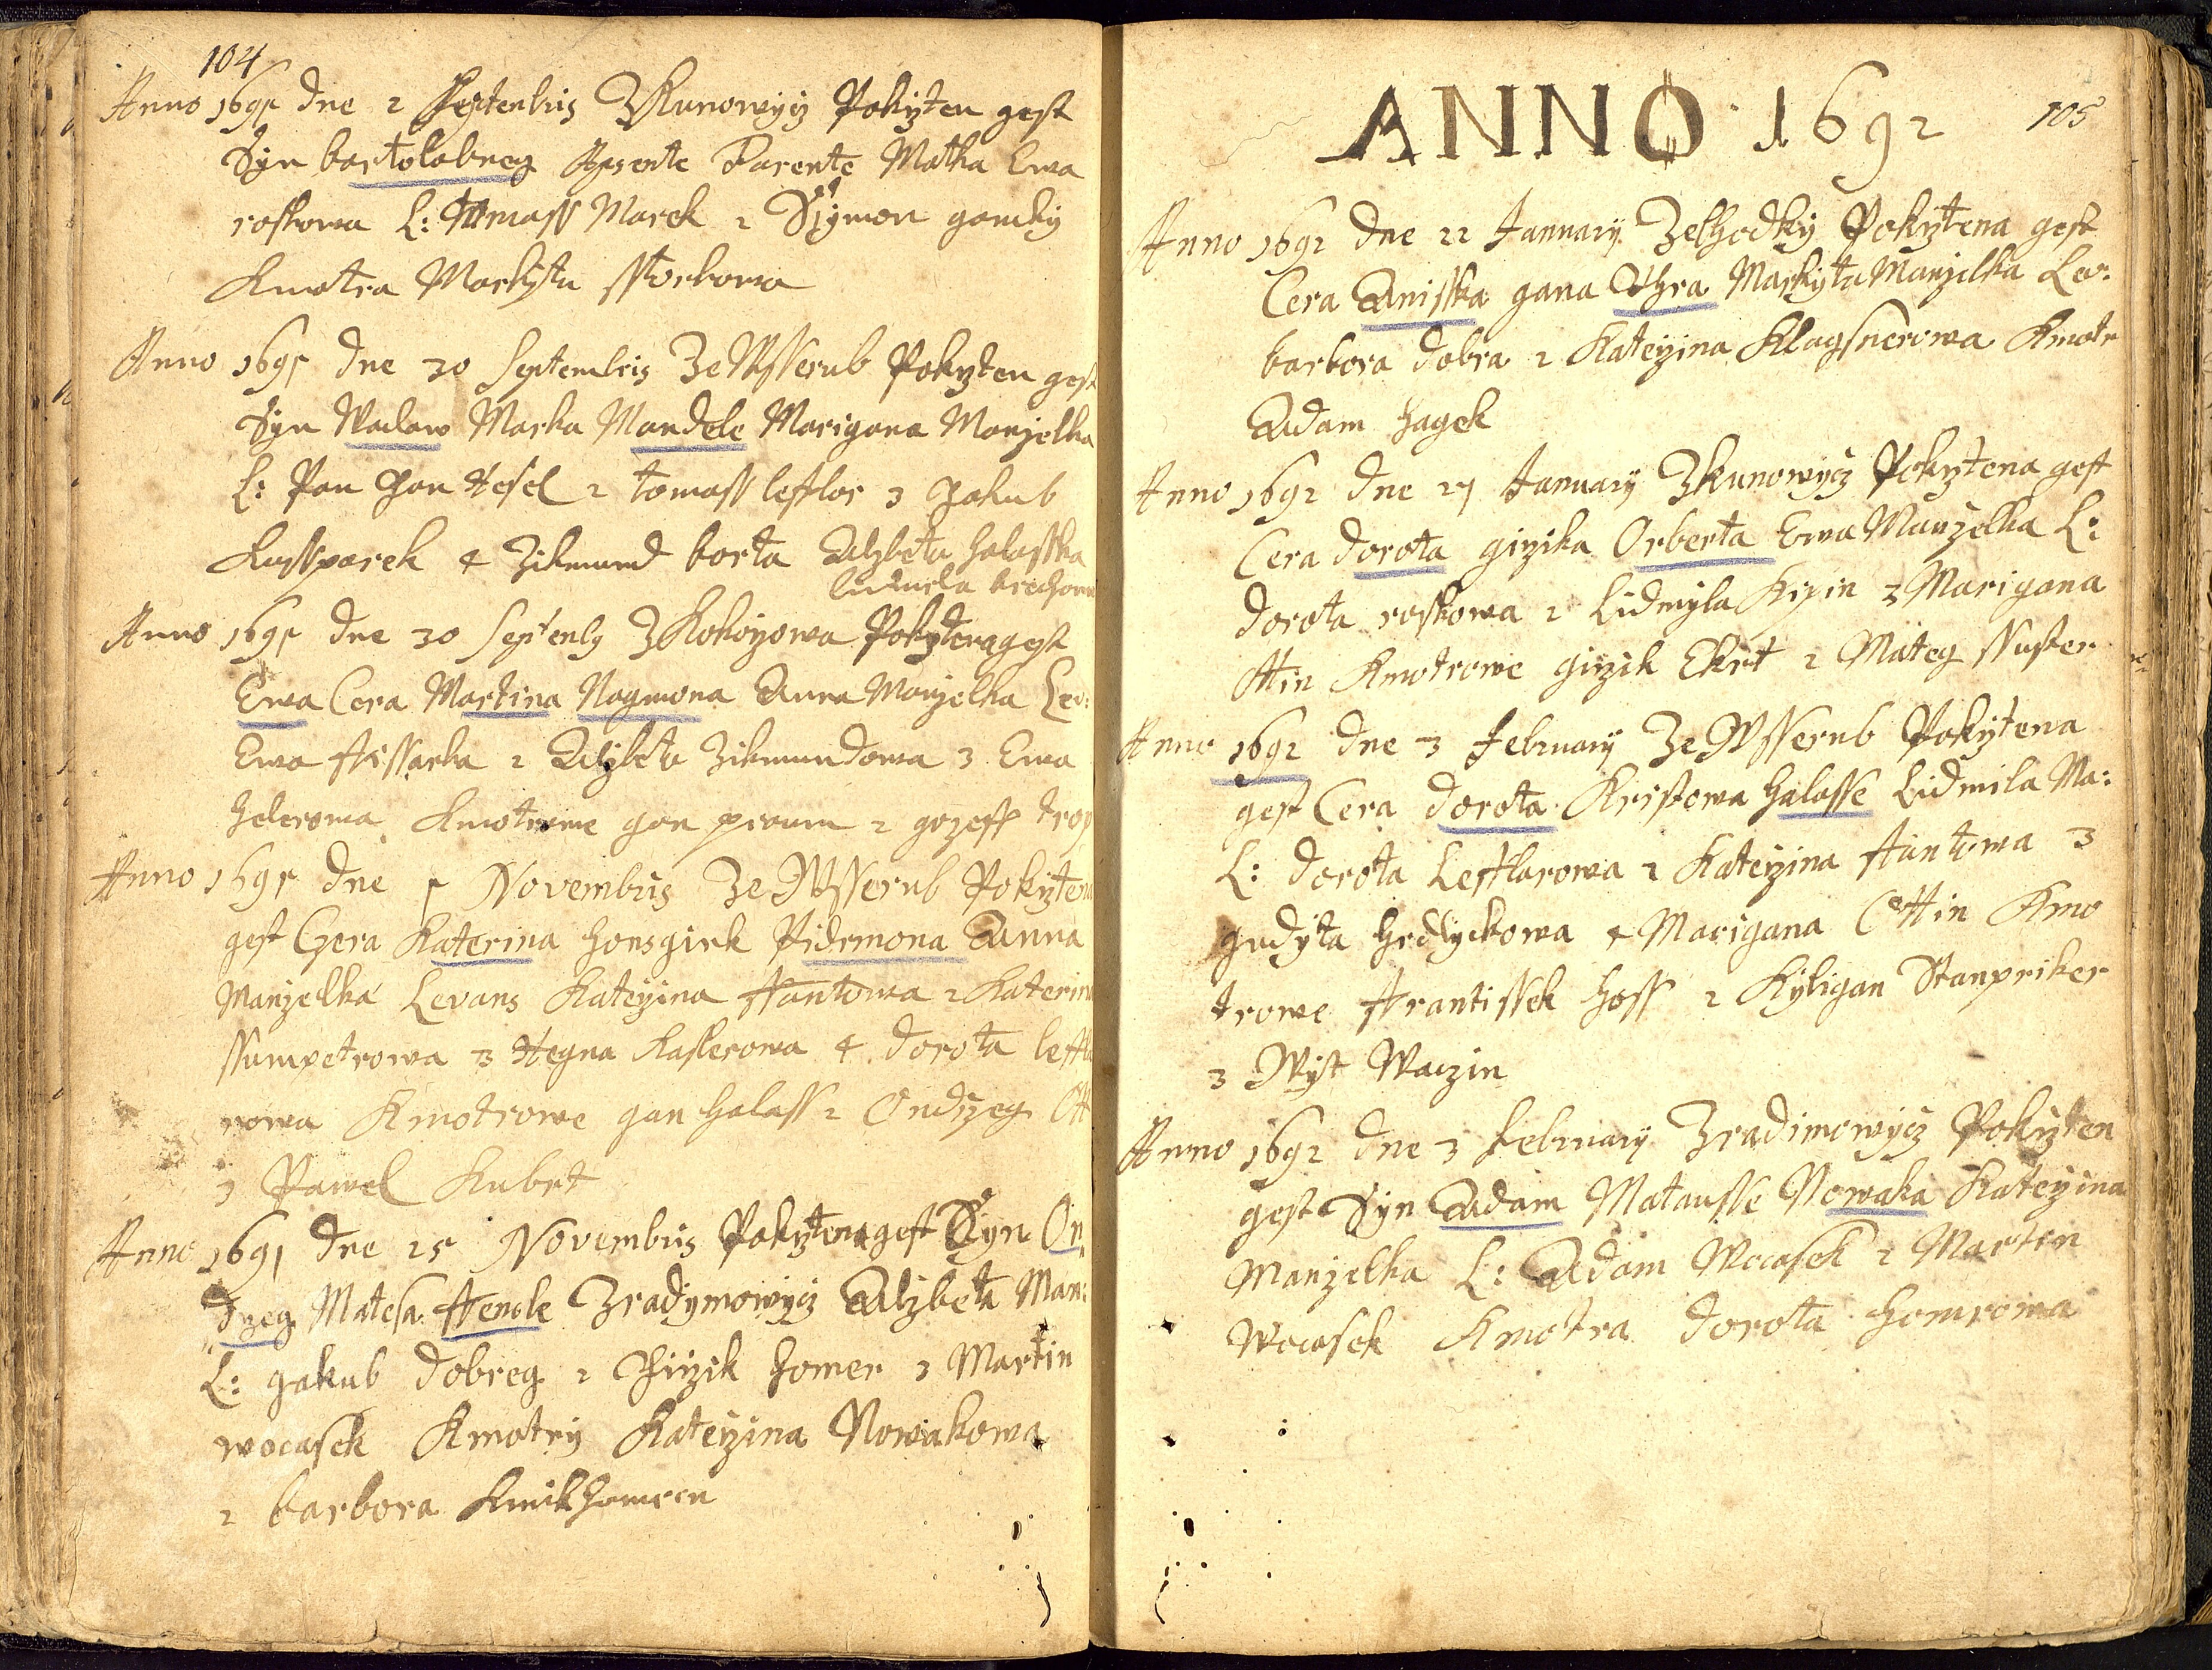 104
Anno 1691 dne 2 Septenbris Z Kunowycz Pokrzten gest
Syn bartolobneg Apsente Parente Matka Ewa
roskowa L: Ttomass Marek 2 Ssymon gamky
Kmotra Markyta sstorkowa
Anno 1691 dne 30 Septembris Ze Wsserub Pokrzten gest
Syn Waclaw Marka Mandele Marigana Manzelka
L: Pan Jan Hesel 2 tomass lefflor 3 Jakub
Kassparek 4 Zikmund barta Alzbeta halasska
lidmila
Anno 1691 dne 30 Septenb Z Kokorzowa Pokrztena gest
Ewa Cera Martina Nagmona Anna Manzelka Lev:
Ewa ffissarka 2 Alzbeta Zikmundowa 3 Ewa
helerowa Kmotrowe gan praum 2 gozeff trop
Anno 1691 dne 1 Novembris Ze Wsserub Pokrztena
gest Czera Katerina honsgirk Pidrmona Anna
Manzelka Levans Katerzina ffantowa 2 Katerina
ssumpetrowa 3 Hegna Kaslerowa 4 dorota leffla
rowa Kmotrowe gan halass 2 Ondrzeg Ott
3 Pawel Kubrt
Anno 1691 dne 25 Novembris Pokrzten gest Syn On
drzeg Matesa ffencle Z radymowycz Alzbeta Man:
L: gakub dobreg 2 Girzik homer 3 Martin
wocasek Kmotry Katerzina Nowakowa
2 barbora
ANNO 1692
105
Anno 1692 dne 22 January Ze lhodky Pokrztena gest
Cera Anisska gana Uhra Markyta Manzelka Lev:
barbora dobra 2 Katerzina Klagsnerowa Kmotr
Adam hagek
Anno 1692 dne 27 January Z Kunowycz Pokrztena gest
Cera dorota girzika Orberta Ewa Manzelka L:
dorota roskowa 2 Lidmyla Kirzin 3 Marigana
Ottin Kmotrowe girzik Ekrt 2 Mateg ssuster
Anno 1692 dne 3 February Ze Wsserub Pokrztena
gest Cera dorota Kristowa halasse Lidmila Ma:
L: dorota Lefflarowa 2 Katerzina ffantowa 3
gudyta hrdlyckowa 4 Marigana Ottin Kmo
trowe ffrantissek hoss 2 Kyligan Stanpriker
3 Wyt Waczin
Anno 1692 dne 3 February Z radimowycz Pokrzten
gest Syn Adam Matausse Nowaka Katerzina
Manzelka L: Adam Wocasek 2 Martin
Wocasek Kmotra dorota homrowa